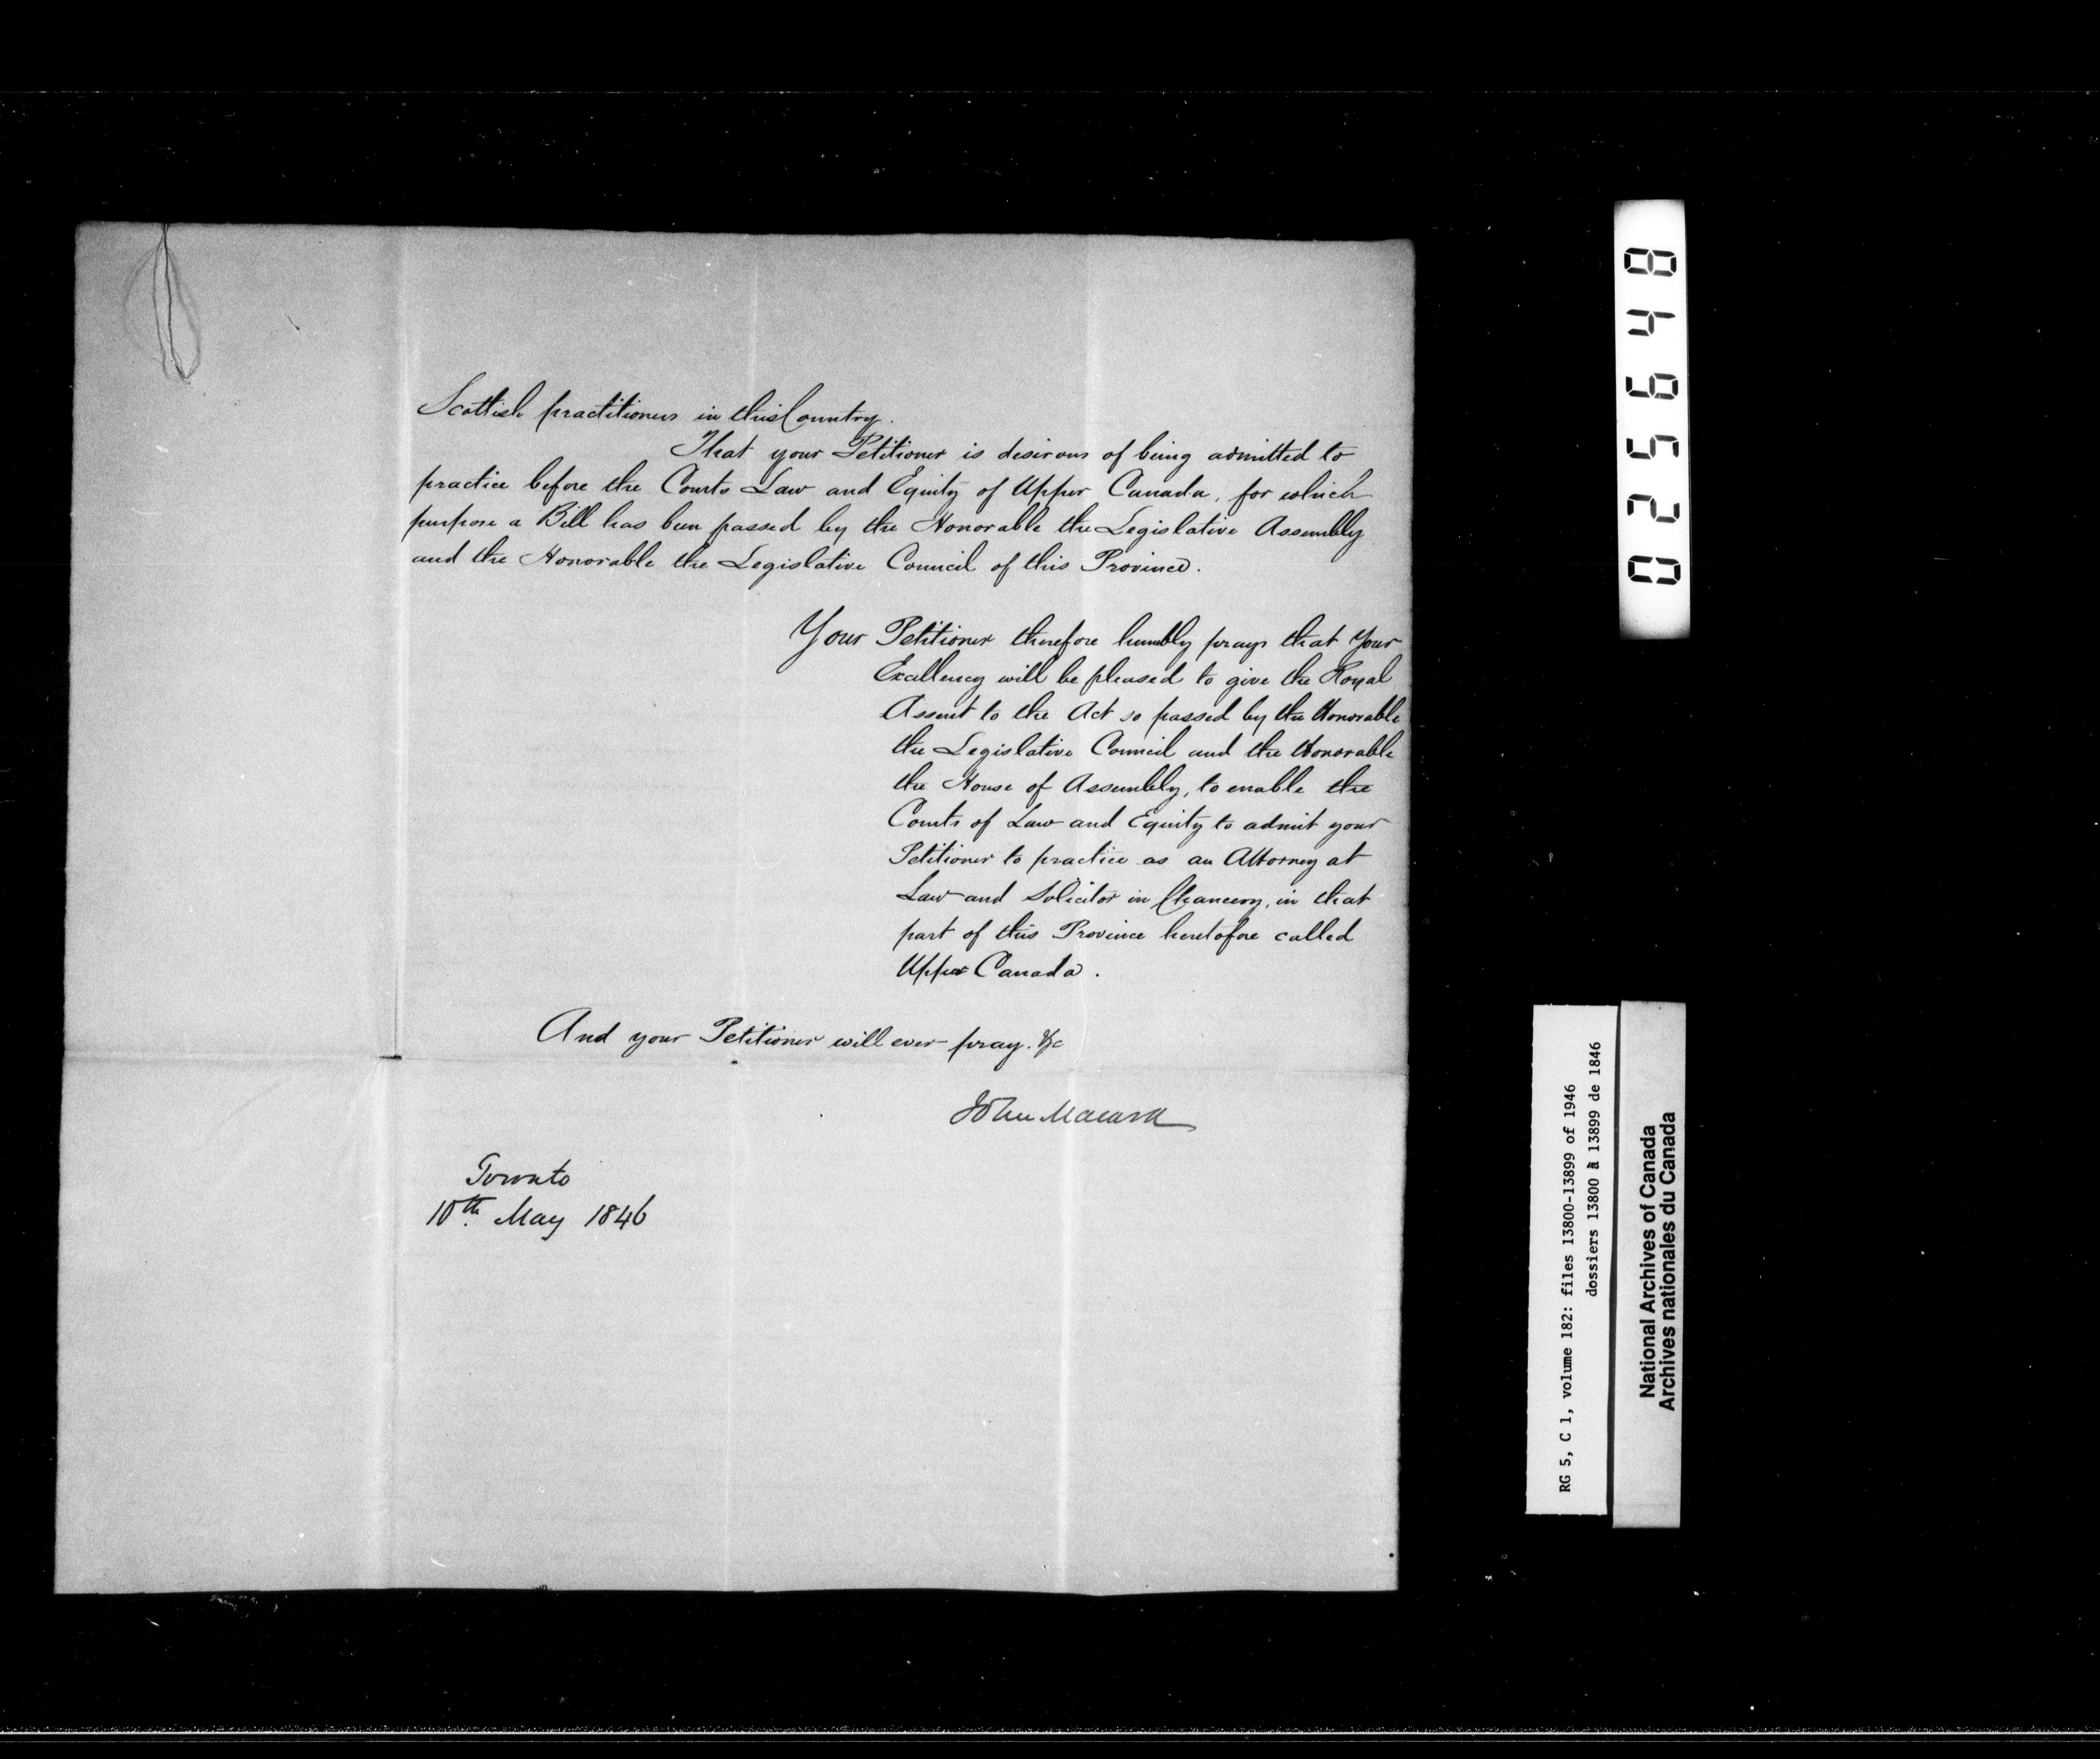 Scottish practitioners in this Country.
That your Petitioner is desirous of being admitted to
practice before the Courts Law and Equity of Upper Canada, for which
purpose a Bill has been passed by the Honorable the Legislative Assembly
and the Honorable the Legislative Council of this Province.
Your Petitioner therefore humbly prays that Your
Excellency will be pleased to give the Royal
Assent to the Act so passed by the Honorable
the Legislative Council and the Honorable
the House of Assembly, to enable the
Courts of Law and Equity to admit your
Petitioner to practice as an Attorney at
Law and Solicitor in Chancery, in that
part of this Province heretofore called
Upper Canada.
And your Petitioner will ever pray. &c
John Macara
Toronto
10th. May 1846
025648
RG 5, C 1, volume 182: files 13800-13899 of 1946
dossiers 13800 à 13899 de 1846
National Archives of Canada
Archives nationales du Canada